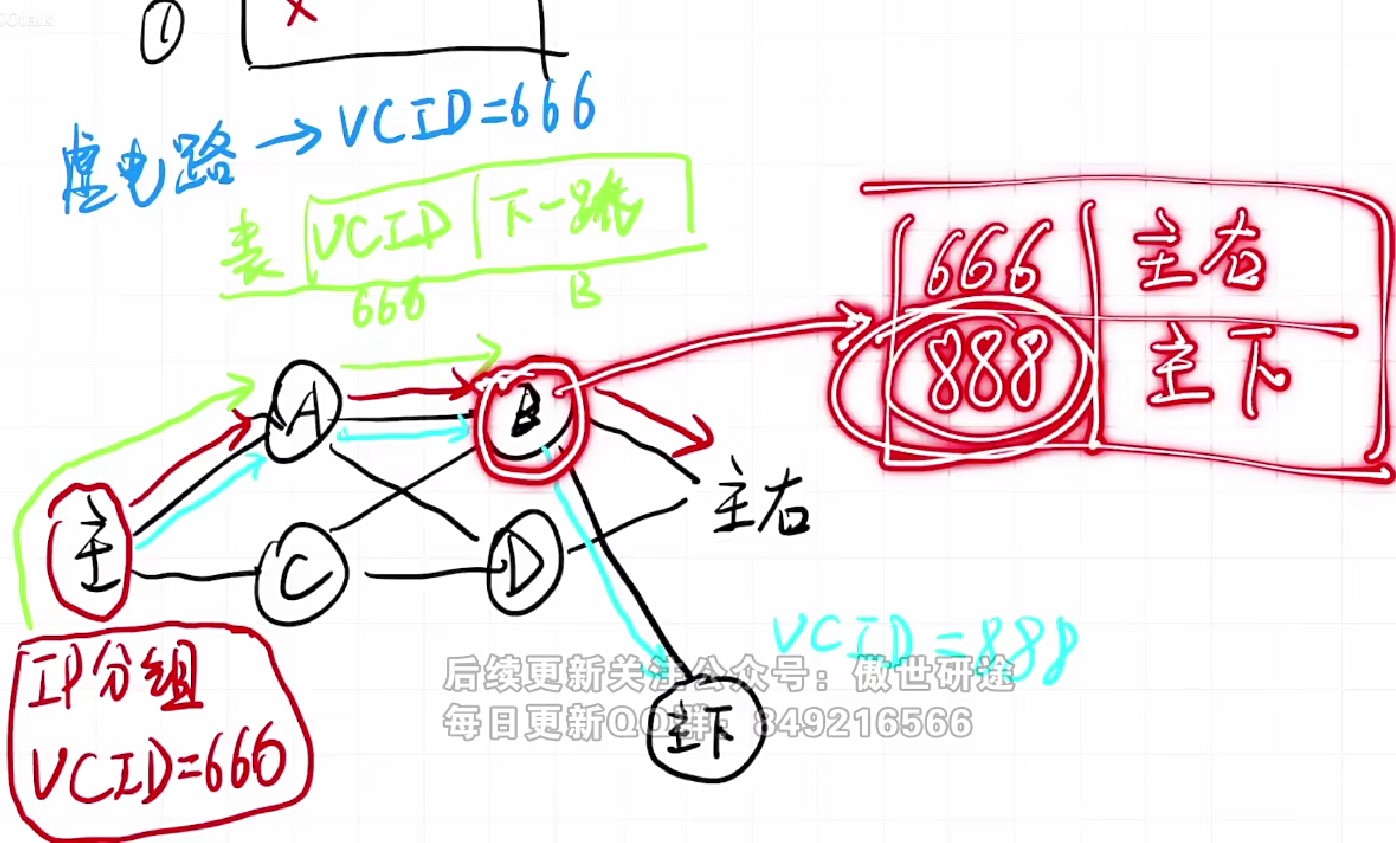 ①
×
虚电路 → VCID=666
表 VCID 下一跳
666 B
666 主右
888 主下
A
B
主
C
D
主右
VCID=888
主下
IP分组
VCID=666
后续更新关注公众号：傲世研途
每日更新QQ群：849216566